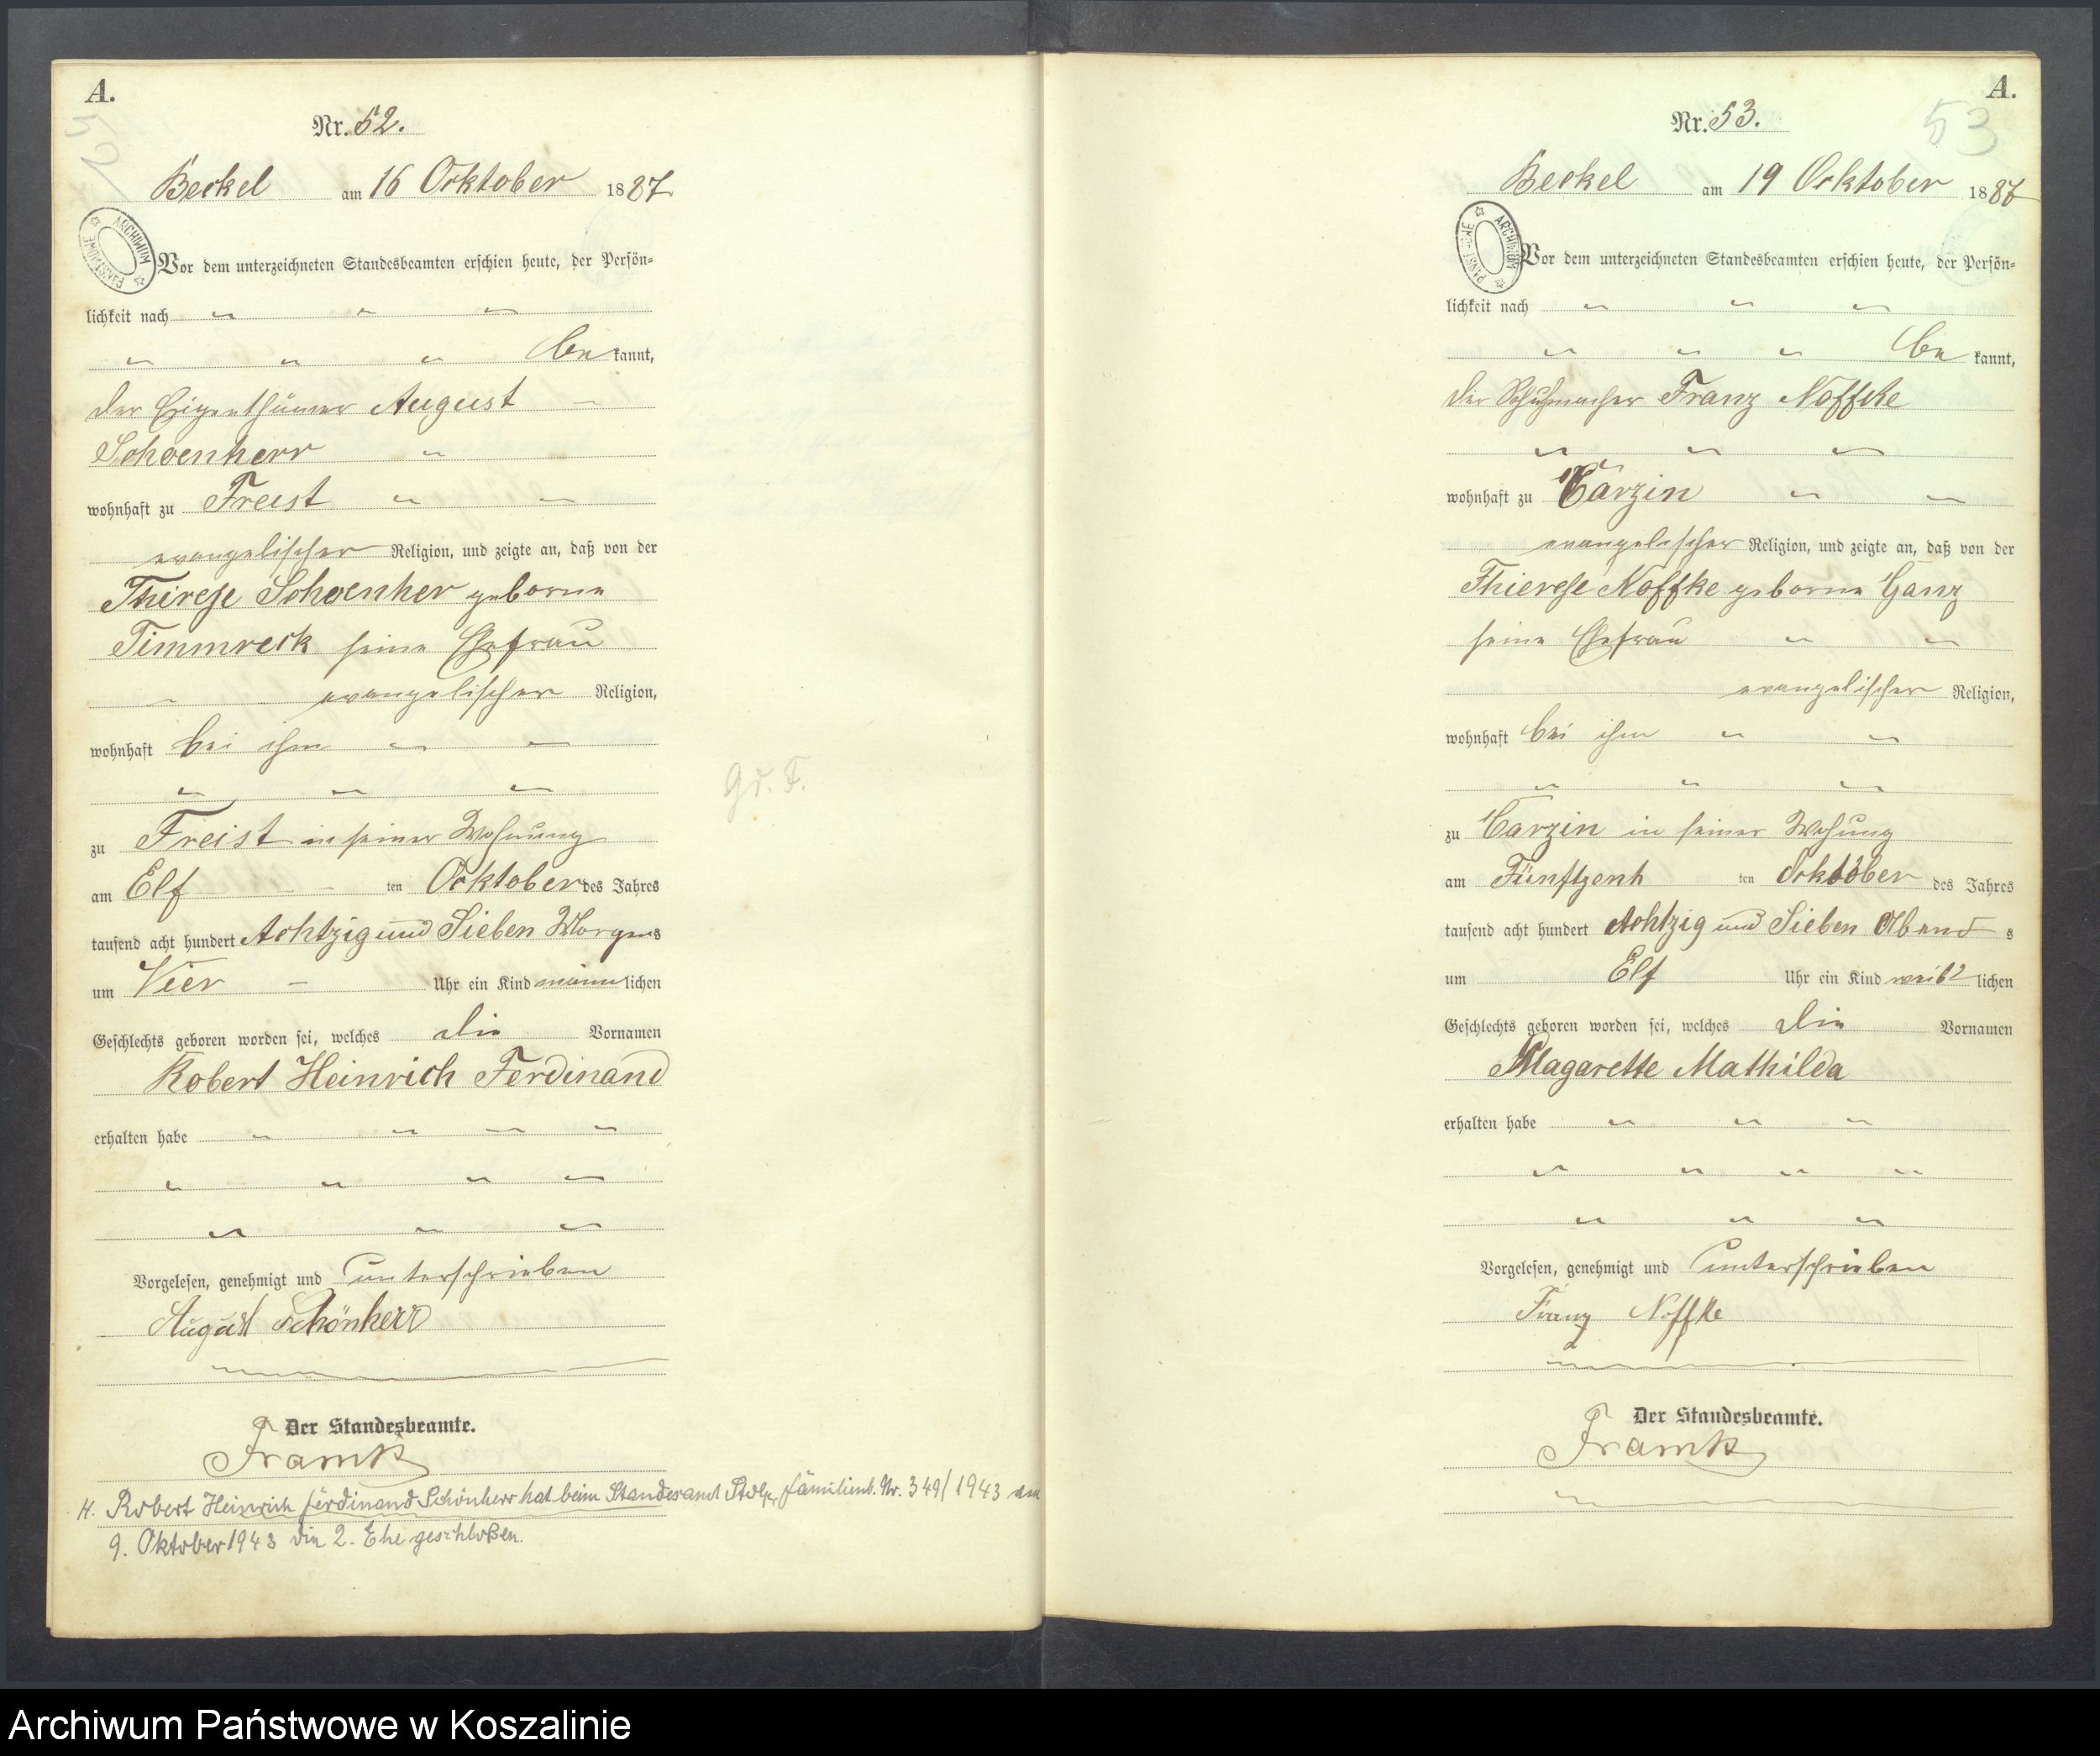 A.
Nr. 52.
52
Beckel am 16 Ocktober 1887
ARCHIWUM PAŃSTWOWE
Vor dem unterzeichneten Standesbeamten erschien heute, der Persön-
lichkeit nach " " "
" " " be kannt,
der Eigenthümer August -
Schoenherr "
wohnhaft zu Freist " "
evangelischer Religion, und zeigte an, daß von der
Thirese Schoenher geborne
Timmreck seine Ehefrau
" evangelischer Religion,
wohnhaft bei ihm " "
" " "
zu Freist in seiner Wohnung
am Elf - - ten Ocktober des Jahres
tausend acht hundert Achtzig und Sieben Morgens
um Vier - Uhr ein Kind männlichen
Geschlechts geboren worden sei, welches die Vornamen
Robert Heinrich Ferdinand
erhalten habe " " " "
" " " "
" " "
Vorgelesen, genehmigt und unterschrieben
August Schönherr
Der Standesbeamte.
Framk
H. Robert Heinrich Ferdinand Schönherr hat beim Standesamt Stolp, Familienb. Nr. 349/1943 am
9. Oktober 1943 die 2. Ehe geschloßen.
Gr. F.
A.
Nr. 53.
53
Beckel am 19 Ocktober 1887
ARCHIWUM PAŃSTWOWE
Vor dem unterzeichneten Standesbeamten erschien heute, der Persön-
lichkeit nach " " "
" " " be kannt,
der Schuhmacher Franz Noffcke
" " "
wohnhaft zu Carzin " "
evangelischer Religion, und zeigte an, daß von der
Thierese Noffke geborne Ganz
seine Ehefrau " "
evangelischer Religion,
wohnhaft bei ihm " "
" " "
zu Carzin in seiner Wohung
am Fünftzenh ten Ocktober des Jahres
tausend acht hundert Achtzig und Sieben Abend s
um Elf Uhr ein Kind weib lichen
Geschlechts geboren worden sei, welches die Vornamen
Magarette Mathilda
erhalten habe " " "
" " " "
" " "
Vorgelesen, genehmigt und unterschrieben
Franz Noffke
Der Standesbeamte.
Framk
Archiwum Państwowe w Koszalinie